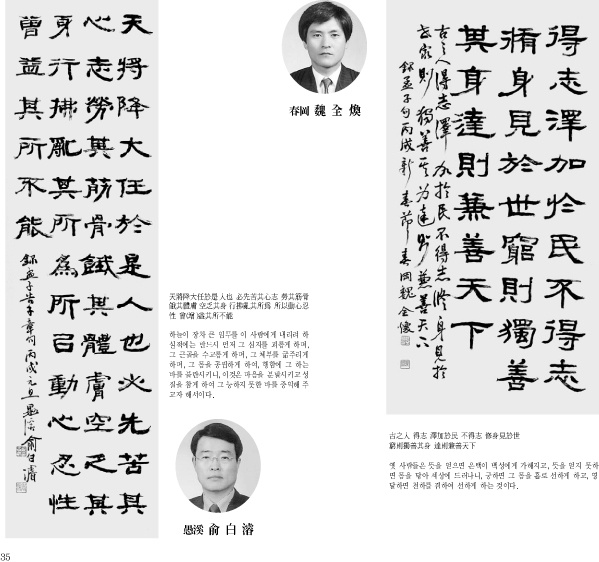 天將降大任於是人也必先苦其
心志勞其筋骨餓其體膚空乏其
身行拂亂其所爲所㠯動心忍性
曾益其所不能
錄孟子告子章句丙戌元旦愚溪俞白濬
春岡 魏全煥
得志澤加於民不得志
脩身見於世窮則獨善
其身達則兼善天下
古之人得志澤加於民不得志脩身見於
世窮則獨善其身達則兼善天下
錄孟子句丙戌新春節春岡魏全煥
天將降大任於是人也 必先苦其心志 勞其筋骨
餓其體膚 空乏其身 行拂亂其所爲 所以動心忍
性 曾(增)益其所不能
하늘이 장차 큰 임무를 이 사람에게 내리려 하
실적에는 반드시 먼저 그 심지를 괴롭게 하며,
그 근골을 수고롭게 하며, 그 체부를 굶주리게
하며, 그 몸을 궁핍하게 하여, 행함에 그 하는
바를 불란시키나니, 이것은 마음을 분발시키고 성
질을 참게 하여 그 능하지 못한 바를 증익해 주
고자 해서이다.
愚溪 俞白濬
古之人 得志 澤加於民 不得志 修身見於世
窮則獨善其身 達則兼善天下
옛 사람들은 뜻을 얻으면 은택이 백성에게 가해지고, 뜻을 얻지 못하
면 몸을 닦아 세상에 드러나니, 궁하면 그 몸을 홀로 선하게 하고, 영
달하면 천하를 겸하여 선하게 하는 것이다.
35